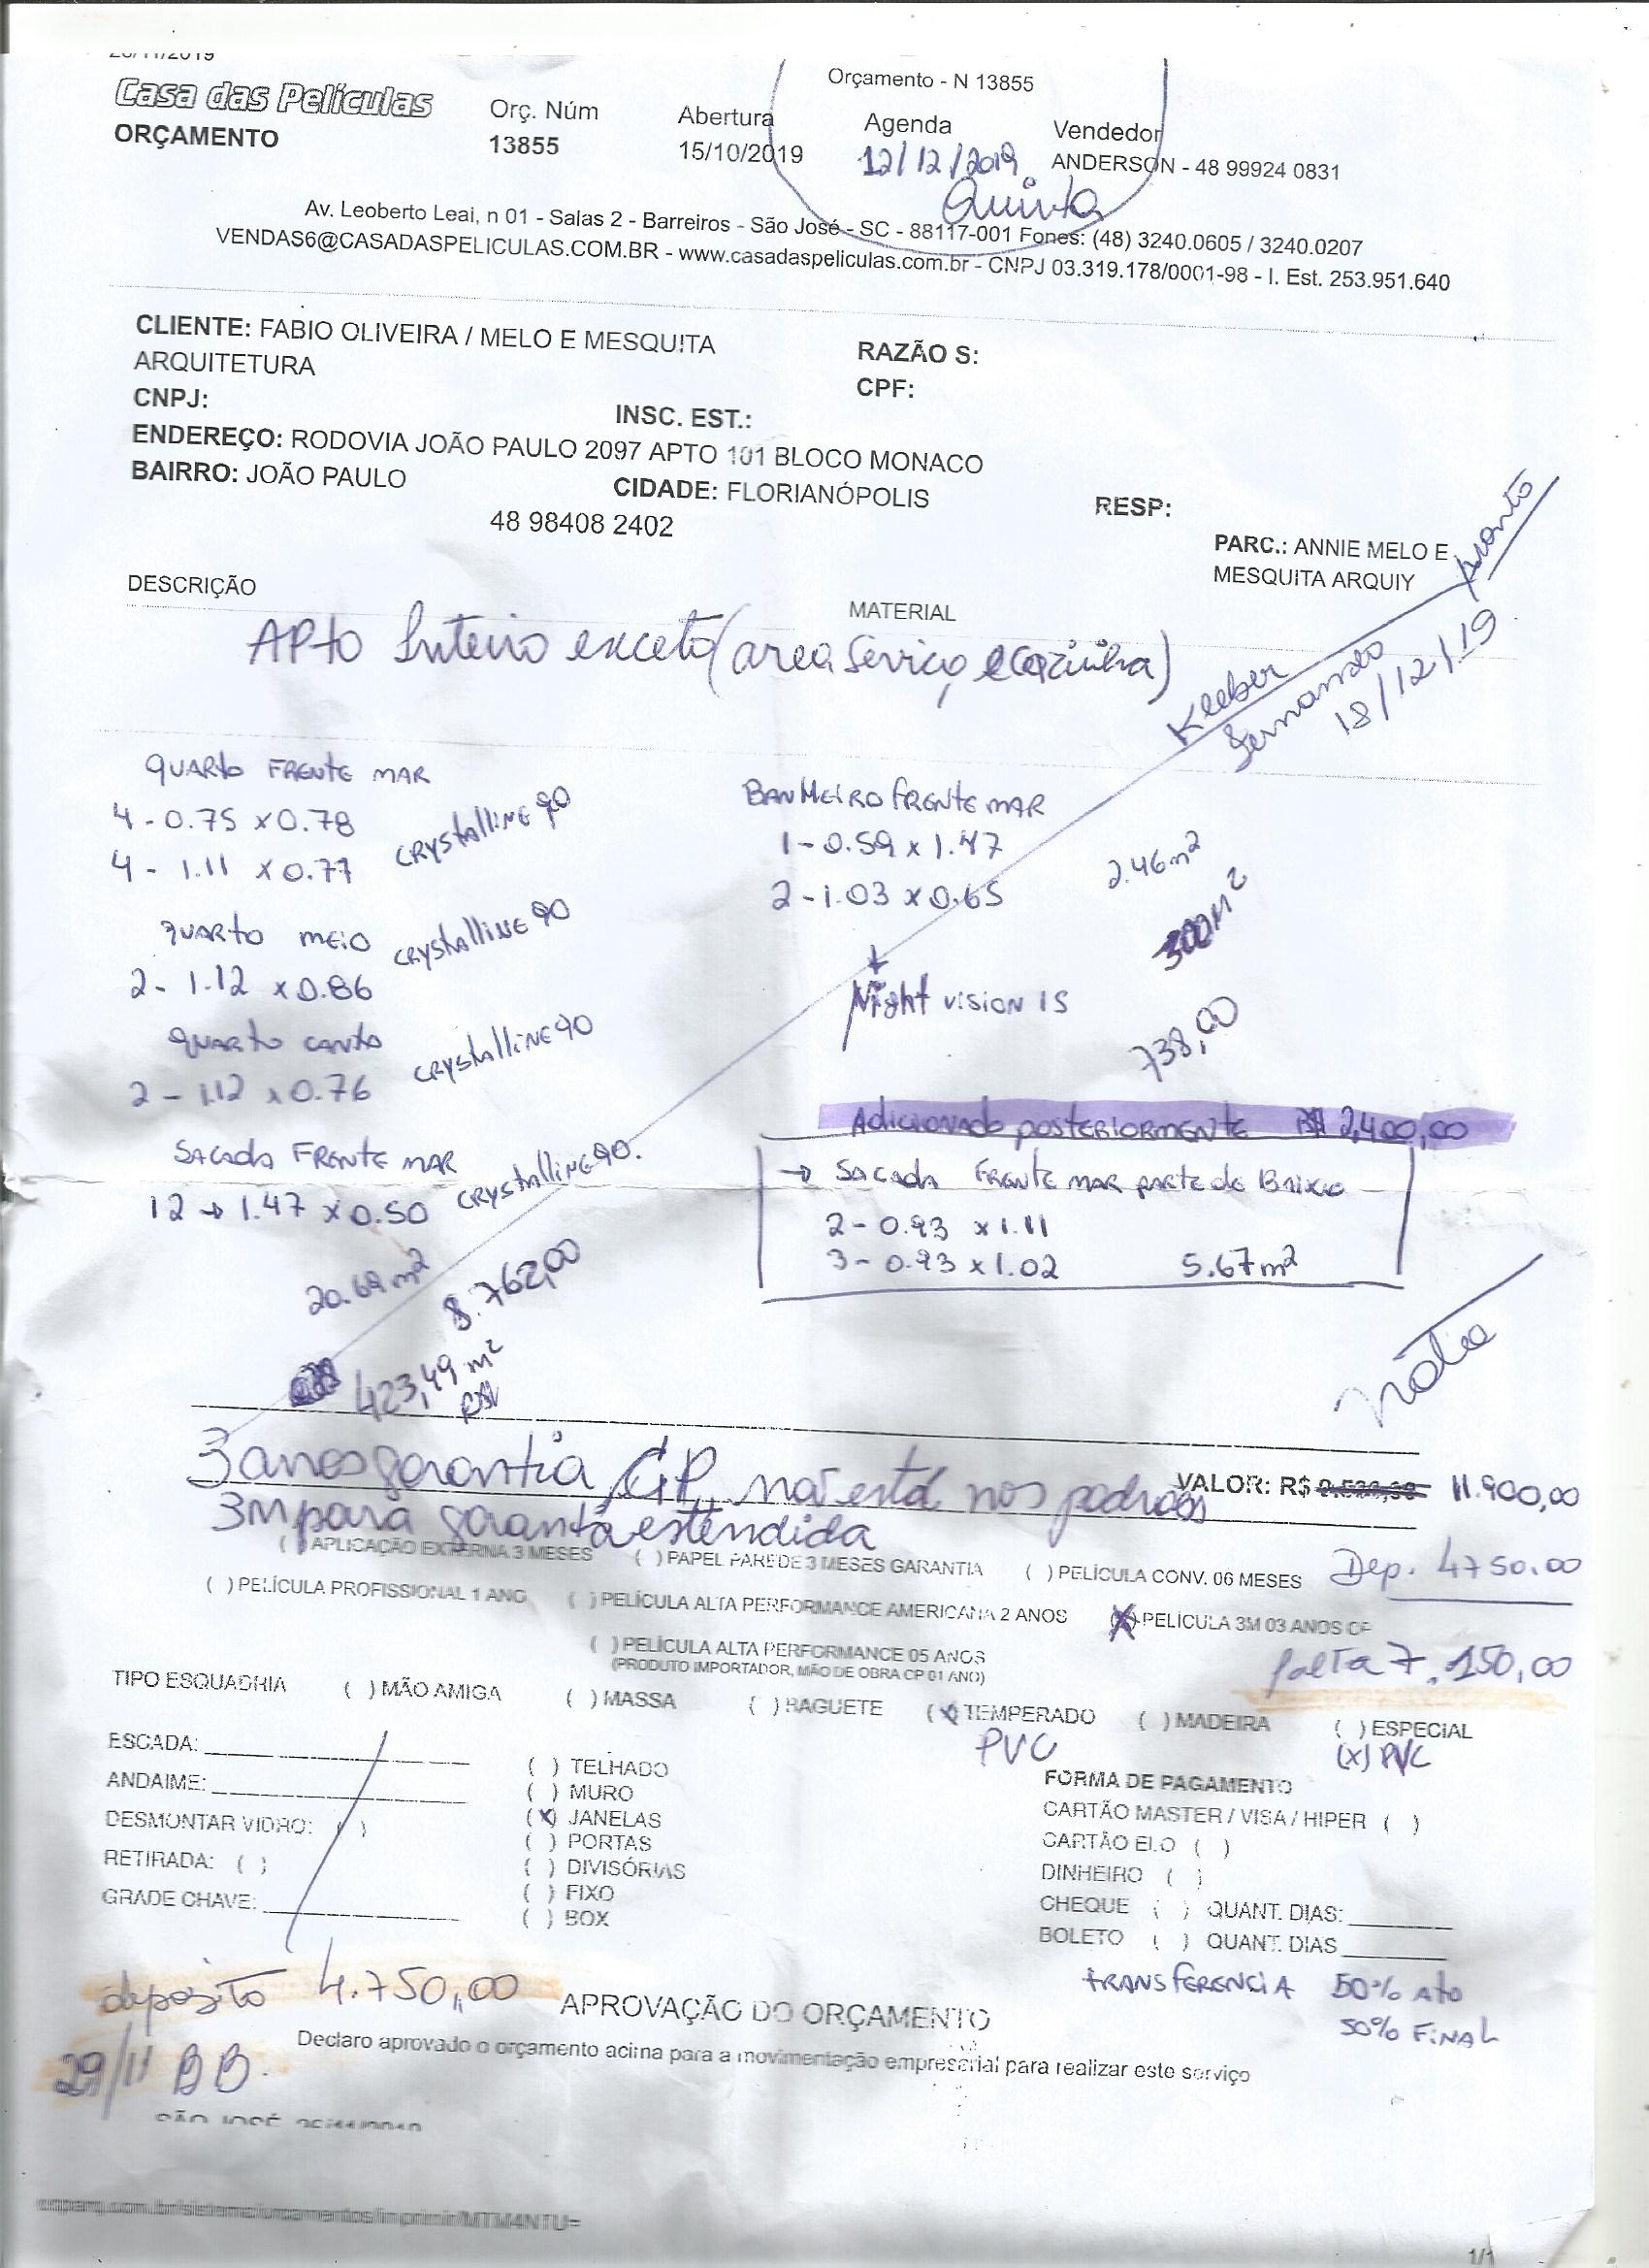 Orçamento - N 13855
Casa das Películas
ORÇAMENTO
Orç. Núm
13855
Abertura
15/10/2019
Agenda
12/12/2019
Quinta
Vendedor
ANDERSON - 48 99924 0831
Av. Leoberto Leai, n 01 - Salas 2 - Barreiros - São José - SC - 88117-001 Fones: (48) 3240.0605 / 3240.0207
VENDAS6@CASADASPELICULAS.COM.BR - www.casadaspeliculas.com.br - CNPJ 03.319.178/0001-98 - I. Est. 253.951.640
CLIENTE: FABIO OLIVEIRA / MELO E MESQUITA
ARQUITETURA
RAZÃO S:
CNPJ:
CPF:
INSC. EST.:
ENDEREÇO: RODOVIA JOÃO PAULO 2097 APTO 101 BLOCO MONACO
BAIRRO: JOÃO PAULO
CIDADE: FLORIANÓPOLIS
RESP:
48 98408 2402
PARC.: ANNIE MELO E
MESQUITA ARQUIY
pronto
DESCRIÇÃO
MATERIAL
APto Inteiro exceto (area Serviço, e cozinha)
Kleber
Fernando
18/12/19
QUARTO FRENTE MAR
4 - 0.75 x 0.78
4 - 1.11 x 0.77
CRYSTALLINE 90
QUARTO MEIO
2 - 1.12 x 0.86
CRYSTALLINE 90
QUARTO CANTO
2 - 1.12 x 0.76
CRYSTALLINE 90
SACADA FRENTE MAR
12 → 1.47 x 0.50
CRYSTALLINE 90.
20.69 m²
8.762,00
423,49 m²
BANHEIRO FRENTE MAR
1 - 0.59 x 1.47
2 - 1.03 x 0.65
2.46 m²
300 M²
Night vision 15
738,00
Adicionado posteriormente R$ 2,400,00
→ SACADA FRENTE MAR parte de Baixo
2 - 0.93 x 1.11
3 - 0.93 x 1.02
5.67 m²
3 anos garantia, GP, não está nos padrões
3M para garantia estendida
VALOR: R$ 11.900,00
( ) APLICAÇÃO EXTERNA 3 MESES
( ) PAPEL PAREDE 3 MESES GARANTIA
( ) PELÍCULA CONV. 06 MESES
Dep. 4750.00
( ) PELÍCULA PROFISSIONAL 1 ANO
( ) PELÍCULA ALTA PERFORMANCE AMERICANA 2 ANOS
(X) PELÍCULA 3M 03 ANOS
( ) PELÍCULA ALTA PERFORMANCE 05 ANOS
(PRODUTO IMPORTADOR, MÃO DE OBRA CP 01 ANO)
falta 7.150,00
TIPO ESQUADRIA
( ) MÃO AMIGA
( ) MASSA
( ) BAGUETE
(X) TEMPERADO
( ) MADEIRA
( ) ESPECIAL
PVC
(X) PVC
ESCADA:
ANDAIME:
DESMONTAR VIDRO: ( )
RETIRADA: ( )
GRADE CHAVE:
( ) TELHADO
( ) MURO
(X) JANELAS
( ) PORTAS
( ) DIVISÓRIAS
( ) FIXO
( ) BOX
FORMA DE PAGAMENTO
CARTÃO MASTER / VISA / HIPER ( )
CARTÃO ELO ( )
DINHEIRO ( )
CHEQUE ( ) QUANT. DIAS:
BOLETO ( ) QUANT. DIAS
TRANSFERENCIA 50% Ato
50% FINAL
deposito 4.750,00
29/11 BB.
APROVAÇÃO DO ORÇAMENTO
Declaro aprovado o orçamento acima para a movimentação empresarial para realizar este serviço
1/1